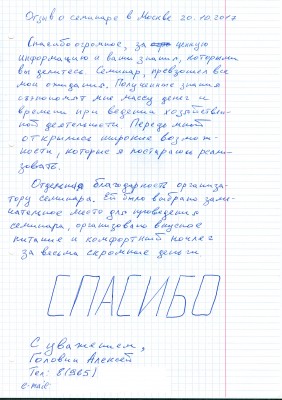 Отзыв о семинаре в Москве 20.10.2017
Спасибо огромное, за ценную
информацию и ваши знания, которыми
вы делитесь. Семинар, превзошел все
мои ожидания. Полученные знания
сэкономят мне массу денег и
времени при ведении хозяйствен-
ной деятельности. Передо мной
открылись широкие возмож-
ности, которые я постараюсь реали-
зовать.
Отдельная благодарность организа-
тору семинара. Ей было выбрано заме-
чательное место для проведения
семинара, организовано вкусное
питание и комфортный ночлег
за весьма скромные деньги.
СПАСИБО
С уважением,
Головин Алексей
Тел: 8(965)
e-mail